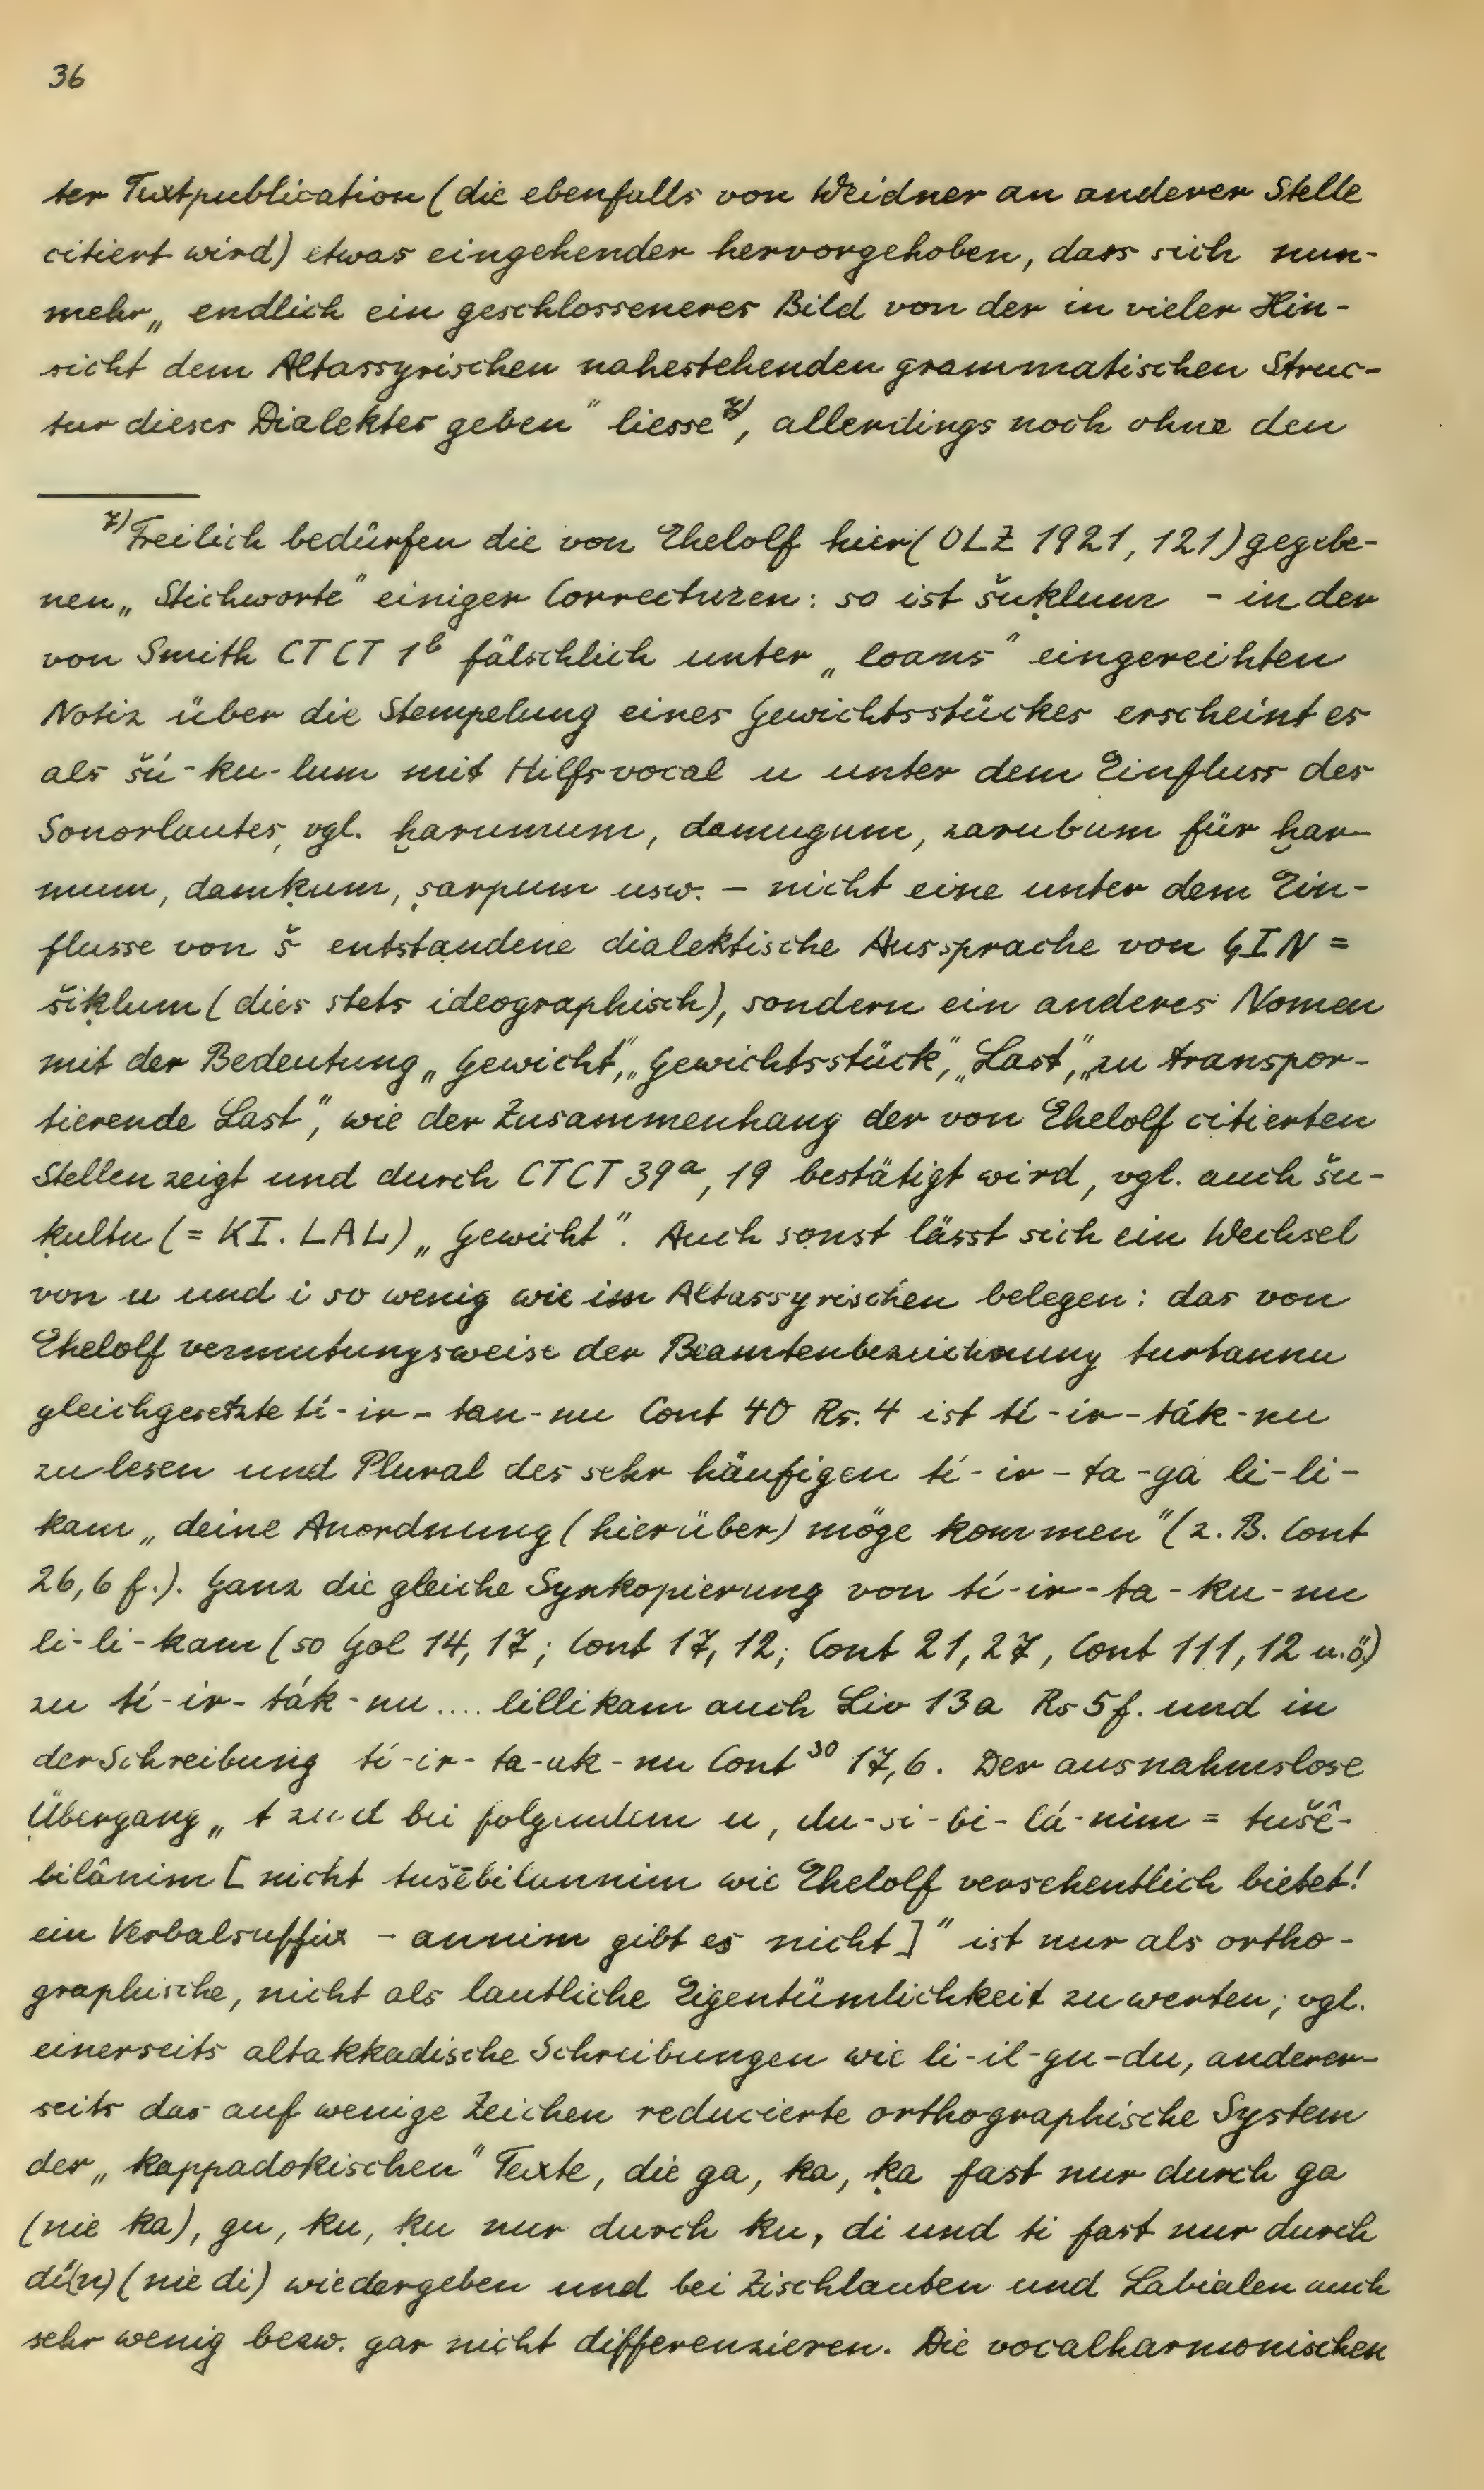 36
ter Textpublication (die ebenfalls von Weidner an anderer Stelle
citiert wird) etwas eingehender hervorgehoben, dass sich nun-
mehr „endlich ein geschlosseneres Bild von der in vieler Hin-
sicht dem Altassyrischen nahestehenden grammatischen Struc-
tur dieses Dialektes geben" liesse⁷⁾, allerdings noch ohne den
⁷⁾ Freilich bedürfen die von Ehelolf hier (OLZ 1921, 121) gegebe-
nen „Stichworte" einiger Correcturen: so ist šuḳlum - in der
von Smith CTCT 1ᵇ fälschlich unter „loans" eingereihten
Notiz über die Stempelung eines Gewichtsstückes erscheint es
als šú-ku-lum mit Hilfsvocal u unter dem Einfluss des
Sonorlautes, vgl. ḫarumum, damugum, zarubum für ḫar-
mum, damḳum, ṣarpum usw. - nicht eine unter dem Ein-
flusse von š entstandene dialektische Aussprache von GIN =
šiḳlum (dies stets ideographisch), sondern ein anderes Nomen
mit der Bedeutung „Gewicht", „Gewichtsstück", „Last", „zu transpor-
tierende Last", wie der Zusammenhang der von Ehelolf citierten
Stellen zeigt und durch CTCT 39ᵃ, 19 bestätigt wird, vgl. auch šu-
ḳultu (= KI. LAL) „Gewicht". Auch sonst lässt sich ein Wechsel
von u und i so wenig wie im Altassyrischen belegen: das von
Ehelolf vermutungsweise der Beamtenbezeichnung turtannu
gleichgesetzte tí-ir-tan-nu Cont 40 Rs. 4 ist tí-ir-ták-nu
zu lesen und Plural des sehr häufigen tí-ir-ta-ga li-li-
kam „deine Anordnung (hierüber) möge kommen" (z. B. Cont
26,6 f.). Ganz die gleiche Synkopierung von tí-ir-ta-ku-nu
li-li-kam (so Gol 14, 17; Cont 17, 12; Cont 21, 27, Cont 111, 12 u.ö.)
zu tí-ir-ták-nu.... lillikam auch Liv 13a Rs 5f. und in
der Schreibung tí-ir-ta-ak-nu Cont³⁰ 17,6. Der ausnahmslose
Übergang „t zu d bei folgendem u, du-si-bi-lá-nim = tušê-
bilânim [nicht tušēbilannim wie Ehelolf versehentlich bietet!
ein Verbalsuffix -annim gibt es nicht]" ist nur als ortho-
graphische, nicht als lautliche Eigentümlichkeit zu werten; vgl.
einerseits altakkadische Schreibungen wie li-il-gu-du, anderer-
seits das auf wenige Zeichen reducierte orthographische System
der „kappadokischen" Texte, die ga, ka, ḳa fast nur durch ga
(nie ka), gu, ku, ḳu nur durch ku, di und ti fast nur durch
dí(n) (nie di) wiedergeben und bei Zischlauten und Labialen auch
sehr wenig bezw. gar nicht differenzieren. Die vocalharmonischen